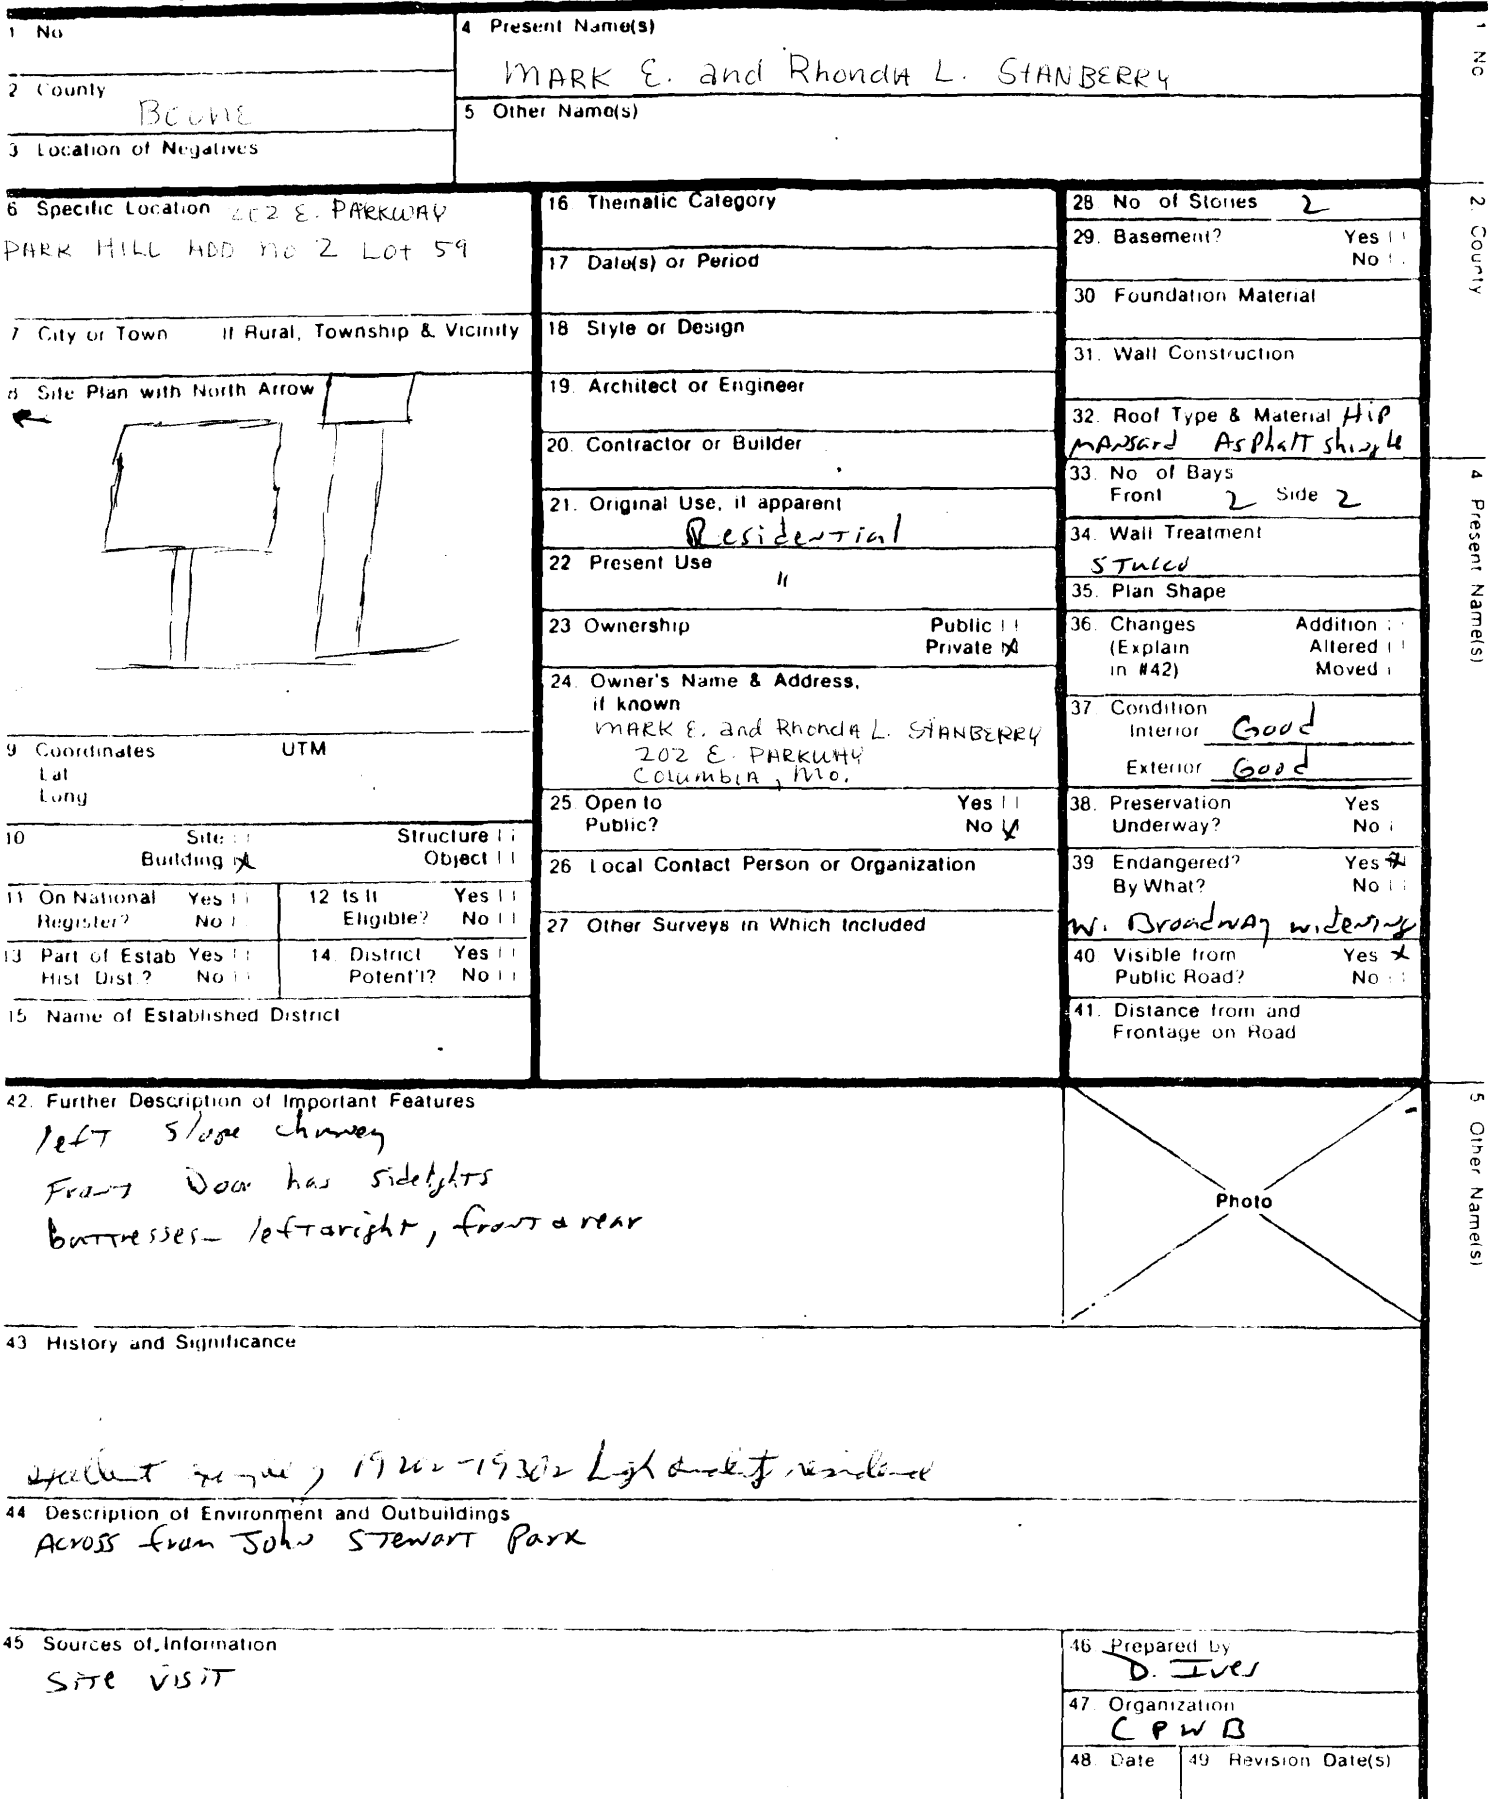 1 No
4 Present Name(s)
MARK E. and RhondA L. StANBERRy
2 County
BOONE
5 Other Name(s)
3 Location of Negatives
6 Specific Location 202 E. PARKWAY
PARK HILL ADD no 2 Lot 59
7 City or Town If Rural, Township & Vicinity
8 Site Plan with North Arrow
9 Coordinates UTM
Lat
Long
10 Site Structure
Building X Object
11 On National Register? Yes No
12 Is It Eligible? Yes No
13 Part of Estab Hist Dist.? Yes No
14. District Potent'l? Yes No
15 Name of Established District
16 Thematic Category
17 Date(s) or Period
18 Style or Design
19. Architect or Engineer
20. Contractor or Builder
21. Original Use, if apparent
Residential
22 Present Use
"
23 Ownership Public
Private X
24. Owner's Name & Address,
if known
MARK E. and RhondA L. StANBERRY
202 E. PARKWAY
ColumbIA, Mo.
25. Open to Yes
Public? No
26 Local Contact Person or Organization
27 Other Surveys in Which Included
28 No of Stories 2
29. Basement? Yes
No
30 Foundation Material
31. Wall Construction
32. Roof Type & Material Hip
mANsard AsPhalT shingle
33. No of Bays
Front 2 Side 2
34. Wall Treatment
STucco
35. Plan Shape
36. Changes Addition
(Explain Altered
in #42) Moved
37. Condition
Interior Good
Exterior Good
38. Preservation Yes
Underway? No
39 Endangered? Yes X
By What? No
W. Broadway widening
40 Visible from Yes X
Public Road? No
41. Distance from and
Frontage on Road
42. Further Description of Important Features
left slope chimney
Front Door has sidelights
buttresses - left & right, front & rear
Photo
43 History and Significance
excellent 1920s-1930s high quality residence
44 Description of Environment and Outbuildings
Across from John Stewart Park
45 Sources of Information
Site visit
46 Prepared by
D. Ives
47. Organization
CPWB
48. Date 49 Revision Date(s)
1 No
2. County
4 Present Name(s)
5 Other Name(s)